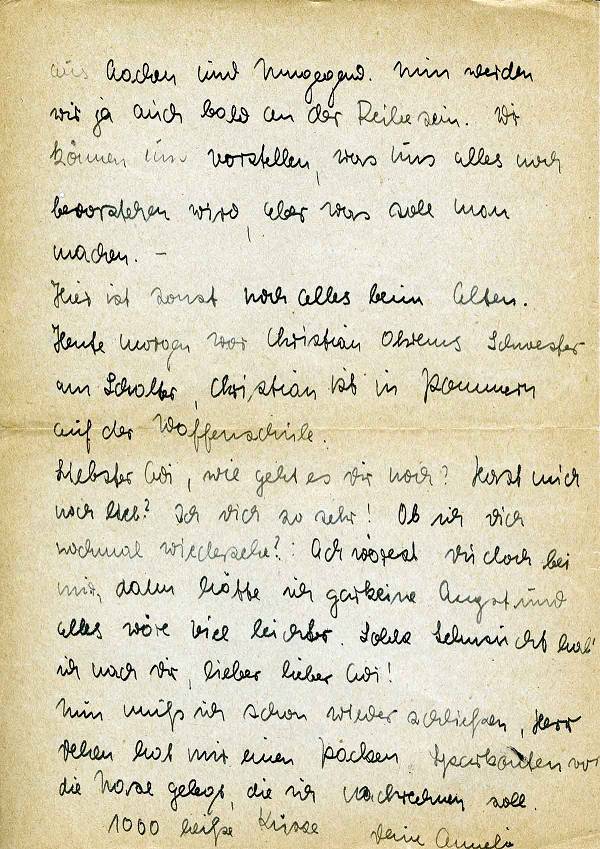 aus Aachen und Umgegend. Nun werden
wir ja auch bald an der Reihe sein. Wir
können uns vorstellen, was uns alles noch
bevorstehen wird, aber was soll man
machen. –
Hier ist sonst noch alles beim Alten.
Heute morgen war Christian Ohrems Schwester
am Schalter, Christian ist in Pommern
auf der Waffenschule.
Liebster Adi, wie geht es dir noch? Hast mich
noch lieb? Ich dich so sehr! Ob ich dich
nochmal wiedersehe? Ach wärest du doch bei
mir, dann hätte ich garkeine Angst und
alles wäre viel leichter. Solche Sehnsucht hab'
ich nach dir, lieber lieber Adi!
Nun muß ich schon wieder schließen, Herr
hat mir einen Packen Sparkonten vor
die Nase gelegt, die ich nachrechnen soll.
1000 heiße Küsse Deine Anneli